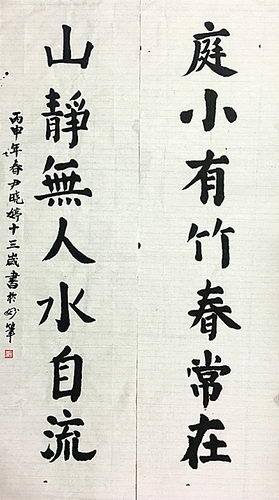 庭小有竹春常在
山靜無人水自流
丙申年春尹晓婷十三歲書於妙筆